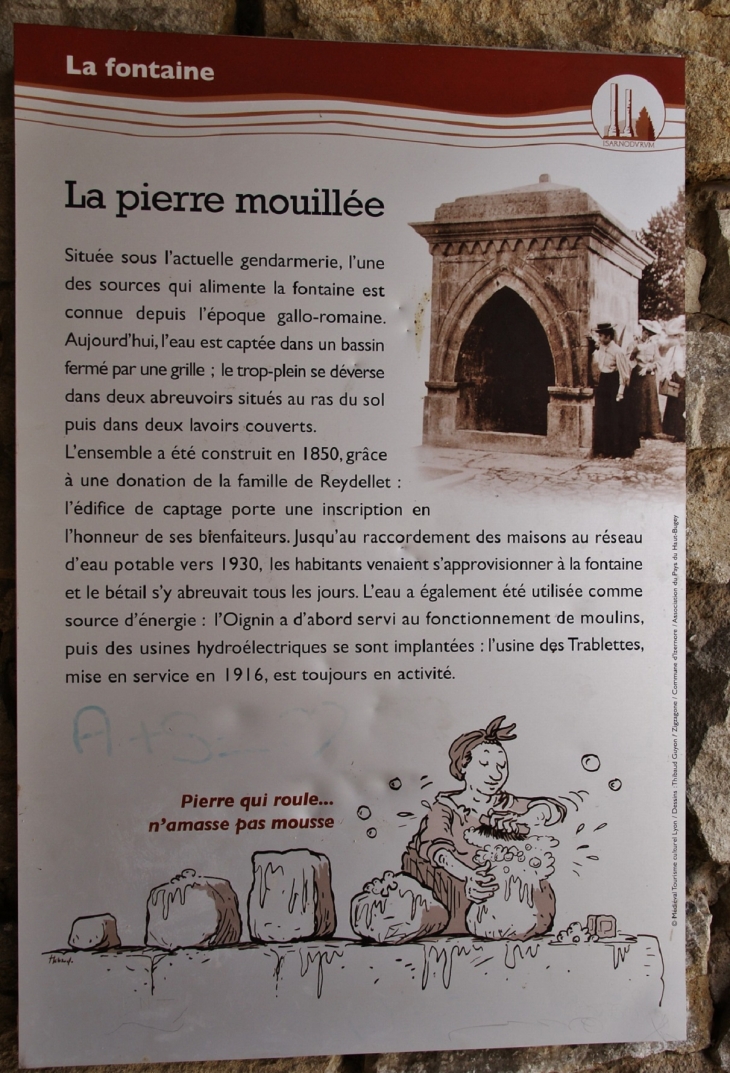 La fontaine
ISARNODVRVM
La pierre mouillée
Située sous l'actuelle gendarmerie, l'une
des sources qui alimente la fontaine est
connue depuis l'époque gallo-romaine.
Aujourd'hui, l'eau est captée dans un bassin
fermé par une grille ; le trop-plein se déverse
dans deux abreuvoirs situés au ras du sol
puis dans deux lavoirs couverts.
L'ensemble a été construit en 1850, grâce
à une donation de la famille de Reydellet :
l'édifice de captage porte une inscription en
l'honneur de ses bienfaiteurs. Jusqu'au raccordement des maisons au réseau
d'eau potable vers 1930, les habitants venaient s'approvisionner à la fontaine
et le bétail s'y abreuvait tous les jours. L'eau a également été utilisée comme
source d'énergie : l'Oignin a d'abord servi au fonctionnement de moulins,
puis des usines hydroélectriques se sont implantées : l'usine des Trablettes,
mise en service en 1916, est toujours en activité.
A+S=
Pierre qui roule...
n'amasse pas mousse
© Médiéval Tourisme culturel Lyon / Dessins : Thibaud Guyon / Zigzagone / Commune d'Izernore / Association du Pays du Haut-Bugey